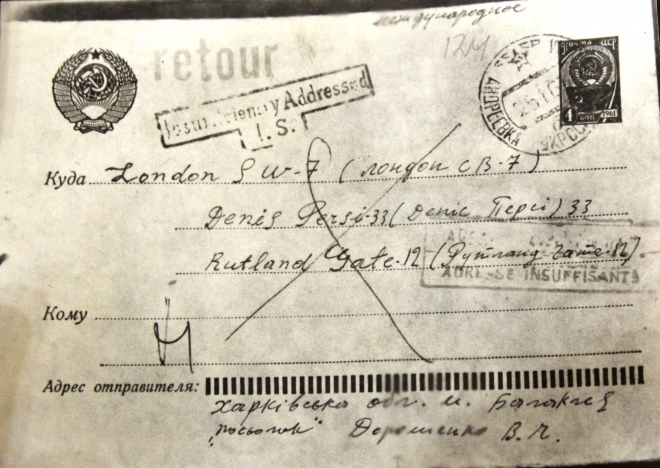 международное
124
retour
Insufficiently Addressed
I. S.
4 коп 1961
УКРССР
Куда London SW-7 (Лондон СВ-7)
Denis Persi-33 (Деніс Персі) 33
Rutland Gate-12 (Рутланд Гате-12)
ADRESSE INSUFFISANTE
Кому
Адрес отправителя:
Харківська обл. м. Балаклея
"посьолок" Дорошенко В. І.